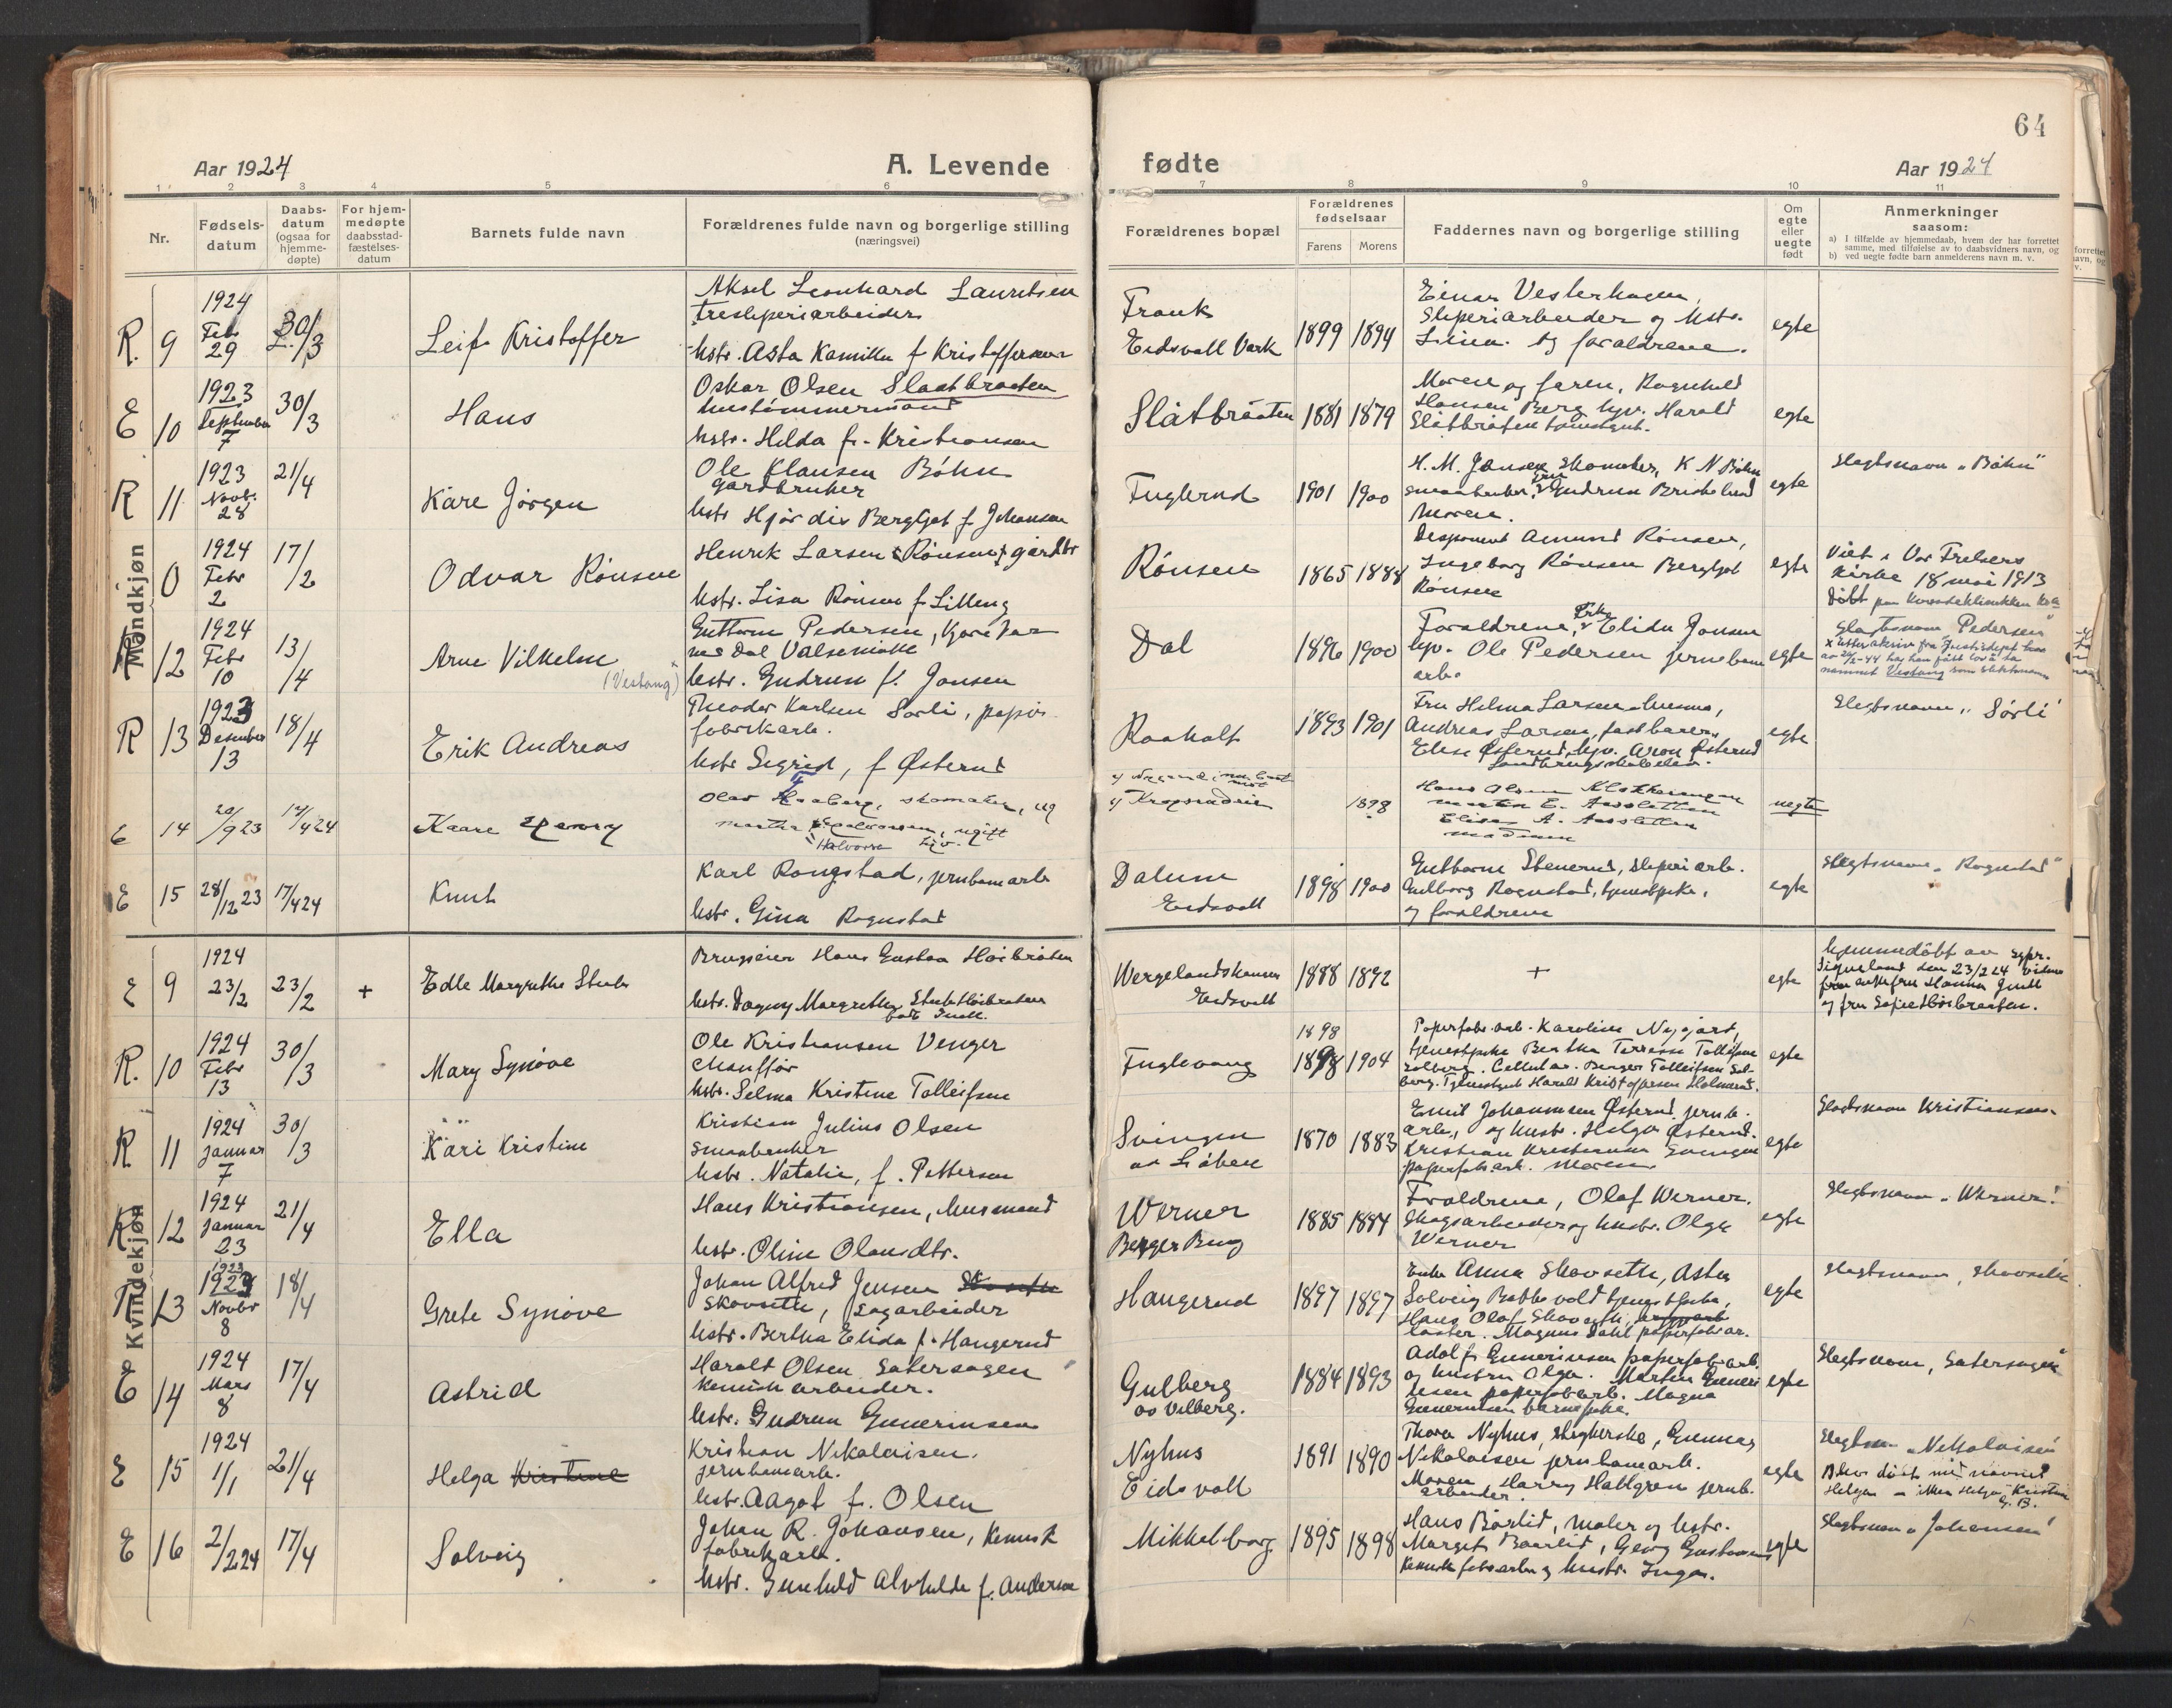 64
Aar 1924
A. Levende
fødte
Aar 1924
1 2 3 4 5 6 7 8 9 10 11
Nr.
Fødsels-
datum
Daabs-
datum
(ogsaa for
hjemme-
døpte)
For hjem-
medøpte
daabsstad-
fæstelses-
datum
Barnets fulde navn
Forældrenes fulde navn og borgerlige stilling
(næringsvei)
Forældrenes bopæl
Forældrenes
fødselsaar
Farens Morens
Faddernes navn og borgerlige stilling
Om
egte
eller
uegte
født
Anmerkninger
saasom:
a) I tilfælde av hjemmedaab, hvem der har forrettet
samme, med tilføielse av to daabsvidners navn, og
b) ved uegte fødte barn anmelderens navn m. v.
Mandkjøn
R. 9
1924
Febr
29
30/3
Leif Kristoffer
Aksel Leonhard Lauritsen
tresliperiarbeider
hstr. Asta Kamilla f Kristoffersen
Frank
Eidsvoll Værk
1899 1894
Einar Vesterhagen,
Sliperiarbeider og hstr.
og forældrene.
egte
E 10
1923
September
7
30/3
Hans
Oskar Olsen Slaatbraaten
hustømmermand
hstr. Hilda f. Kristiansen
Slåtbråaten
1881 1879
Moren og faren, Ragnhild
Hansen Berg hjv. Harald
Slåtbråten
egte
R 11
1923
Novbr.
28
21/4
Kåre Jørgen
Ole Klausen Bøhn
gårdbruker
hstr Hjørdis Bergljot f Johansen
Fuglerud
1901 1900
H. M. Jansen Skomaker, K N Bøhn
smaabruker, Gudrun
Moren.
egte
Slegtsnavn "Bøhn"
0
1924
Febr
2
17/2
Odvar Rønsen
Henrik Larsen Rønsen, gårdbr
hstr. Lisa Rønsen f Lilleng
Rønsen
1865 1888
Disponent Amund Rønsen,
Ingeborg Rønsen Bergljot
Rønsen
egte
Viet i Vor Frelsers
kirke 18 mai 1913
Døbt paa Kvindeklinikken
12
1924
Febr
10
13/4
Arne Vilhelm
(Vestang)
Guttorm Pedersen,
ved Dal Valsemølle
hstr. Gudrun f. Jonsen
Dal
1896 1900
Forældrene, Elida Jonsen
hjv. Ole Pedersen jernbane
arb.
egte
Slegtsnavn "Pedersen"
navnet Vestang som slektsnavn
R 13
1923
Desember
13
18/4
Erik Andreas
Theodor Karlsen Sørli, papir
fabrikarb.
hstr Sigrid, f Østerud
Raaholt
1893 1901
Fru Helma Larsen
Andreas Larsen,
Elise Østerud, hjv. Østerud
egte
Slegtsnavn "Sørli"
E 14
20/9 23
17/4 24
Kaare
Olav skomaker, ug
Martha ugift
1898
Hans Olsen
Martin E.
Elise A.
moderen
uegte
E 15
28/12 23
17/4 24
Knut
Karl Rognstad, jernbanearb
hstr. Gina Rognstad
Dalum
Eidsvoll
1898 1900
Guttorm Stenerud, sliperiarb.
Gulborg Rognstad, tjenestpike,
og forældrene
egte
Slegtsnavn "Rognstad"
Kvindekjøn
E 9
1924
23/2
23/2
+
Edle Margrethe Stub
Brugseier Hans Gustav Høibråten
hstr. Dagny Margrethe Stub Høibråten
født
Wergelandshaugen
Eidsvoll
1888 1892
+
egte
hjemmedøbt av sgpr.
den 23/2 24
og fru Sofie Høibraaten.
R. 10
1924
Febr
13
30/3
Mary Synøve
Ole Kristiansen Venger
chauffør
hstr. Selma Kristine Tolleifsen
Fuglevang
1898
1898 1904
Papirfabr. arb. Karoline Nygård,
tjenestpike Bertha Terese Tolleifsen
Solberg. Berger Tolleifsen Sol-
berg. Harald Kristoffersen
egte
R 11
1924
Januar
7
30/3
Kåri Kristine
Kristian Julius Olsen
smaabruker
hstr. Natalie, f. Pettersen
Svingen
av Låken
1870 1883
Emil Johannesen Østerud, jernb.
arb., og hustr. Helga Østerud.
Kristian Kristiansen Svingen
papirfab arb. Moren
egte
Slegtsnavn Kristiansen
R 12
1924
Januar
23
21/4
Ella
Hans Kristiansen, husmand
hstr. Oline Olausdtr.
Werner
Berger Brug
1885 1884
Forældrene, Olaf Werner.
Skogsarbeider og hustr. Olga
Werner
egte
Slegtsnavn "Werner"
R 13
1923
Novbr
8
18/4
Grete Synøve
Johan Alfred Jensen
Skovseth, Sagarbeider
hstr. Bertha Elida f. Haugerud
Haugerud
1897 1897
Enke Anna Skovseth, Asta
Solveig
Hans Olaf Skovseth,
Magnus Dahl papirfabar.
egte
Slegtsnavn, Skovseth
E 14
1924
Mars
8
17/4
Astrid
Harald Olsen Sætersagen
Kemisk arbeider.
hstr. Gudrun Gunerinsen
Gulberg
av Vilberg.
1884 1893
Adolf Gunerinsen papirfab arb.
og hustru Olga. Martin Guneri
nsen papirfabarb. Magna
Gunerinsen barnepike.
egte
Slegtsnavn, Sætersagen
E 15
1924
1/1
21/4
Helga Kristine
Kristian Nikolaisen.
jernbanearb.
hstr. Aagot f. Olsen
Nyhus
Eidsvoll
1891 1890
Thora Nyhus, Gunnar
Nikolaisen jernbanearb.
Moren, Harry Hallgren jernb.
arbeider.
egte
Slegtsn "Nikolaisen"
Blev døbt med navnet
Helga - ikke Helga Kristine
G. B.
E 16
2/2 24
17/4
Solveig
Johan R. Johansen, Kemisk
fabrikarb.
hstr. Gunhild Alvhilde f. Andersen
Mikkelborg
1895 1898
Hans Bårlid, maler og hstr.
Margit Baarlid, Georg Gustavsen
Kemisk fabrarb og hustr. Inga.
egte
Slegtsnavn "Johansen"